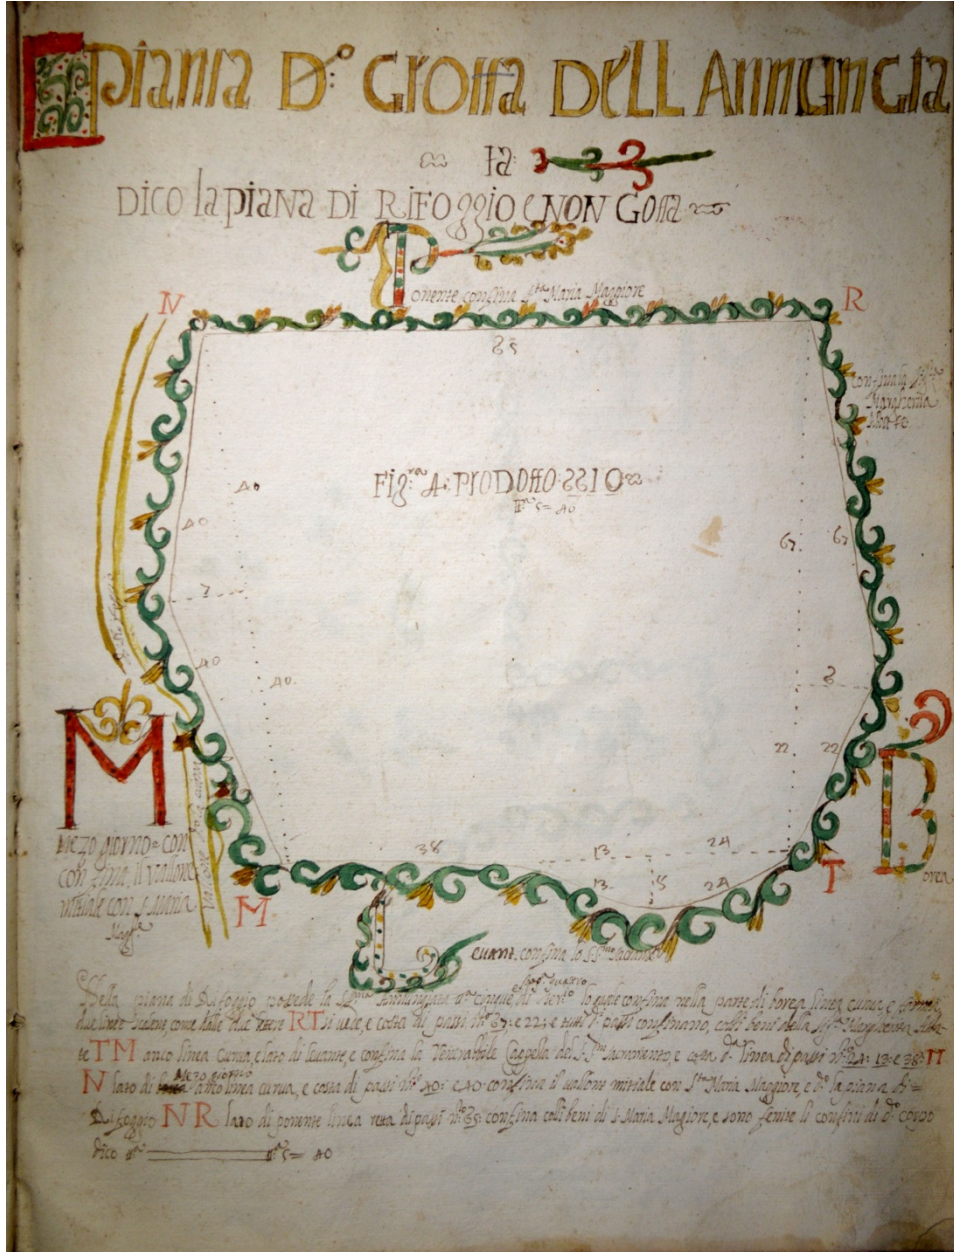 piana D.º Grossa DELL Annuncia
ta:
DICO la piaNA DI RiFoggio e NON Gossa
Ponente confina S.ta Maria Maggiore
N R
85
Confina la
Margherita
Fig.ra A: PRODOTTO 2210
40
40
67
67
7
40
40
8
22
22
M
B
orea
Mezo giorno
confina, il vallone
mitiale con S. Maria
Magre
38
13
24
13
5
24
M
T
Levante confina lo SS.mo Sacramento
Nella piana di Rifoggio possede la Annunziata cinque di lo quale confina nella parte di borea linea curva, e forma
due linee come dalle due lettere RT si vede, e costa di passi n.º e 22: e tutti d. passi confinano, colli beni della Margherita
te TM anco linea curva, e lato di levante, e confina la Venerabile Cappella del SS.mo Sacramento, e costa d.a linea di passi n.º 24: 13: e 38: M
N lato di Mezo giorno anco linea curva, e costa di passi n.º 40: e 40: confina il vallone mitiale con S.ta Maria Maggiore, e d.º la piana di
Rifoggio NR lato di ponente linea reta di passi n.º 85: confina colli beni di S. Maria Magiore, e sono fenite li confini di d.º corpo
dico 5= 40